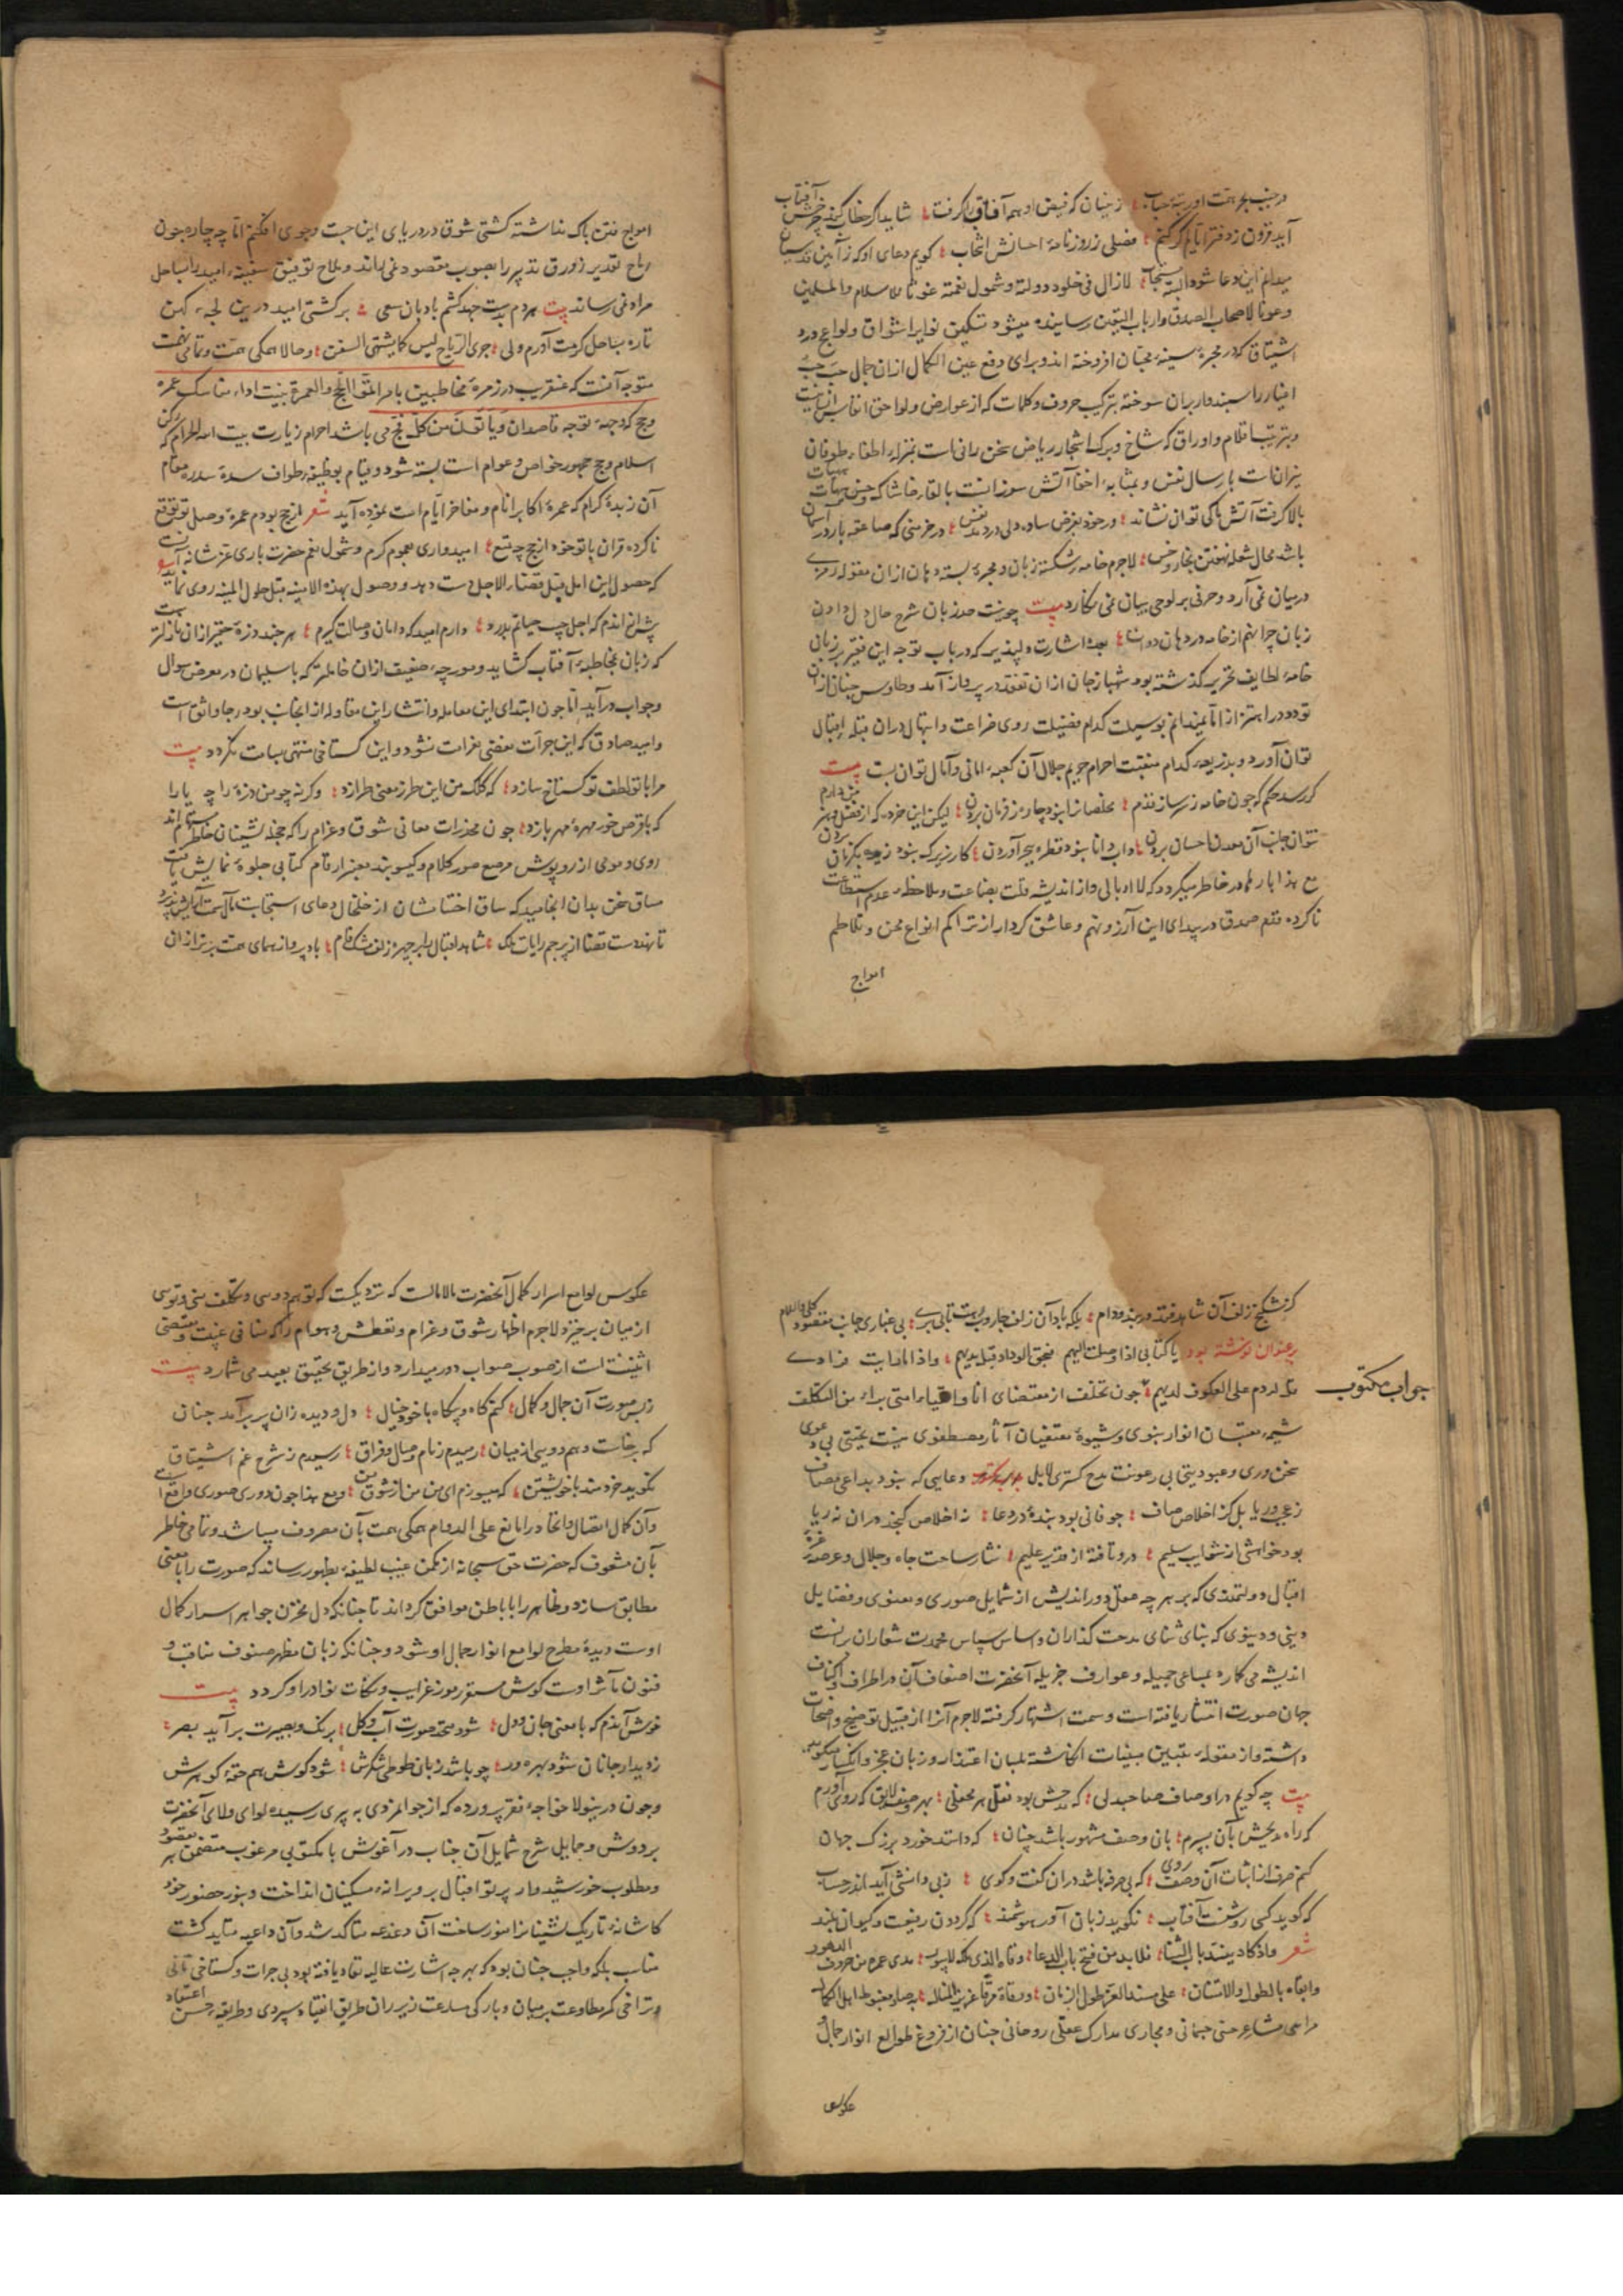 در جنب بحر همت او رتبه حباب زینسان که فیض او همه آفاق را گرفت شاید اگر خطاب کنندش آفتاب
آید فزون ز دفتر ایام گر کنم فصلی ز روزنامه احسانش انتخاب گویم دعای او که ز آیین قدسیان
میدانم این دعا شود البته مستجاب لازال فی خلود دولته و شمول نعمته عونا للاسلام والمسلمین
وعونا لاصحاب الصدق وارباب الیقین رسانیده میشود تسکین نوایر اشواق ولواعج درد
اشتیاق که در مجمره سینه محبان افروخته اند و برای دفع عین الکمال ازان جمال حب
اغیار را سپندوار بران سوخته بترکیب حروف و کلمات که از عوارض و لواحق انفاس
و بترتیب اقلام و اوراق که شاخ و برگ اشجار ریاض سخن رانی است بمنزله اطفاء طوفان
نیران است بارسال نفس و بمثابه اخفا آتش سوزانست بالقاء خاشاک و خس
بالا گرفت آتش ما کی توان نشاند ور خود بفرض ساده دلی در دمد نفس در خرمنی که صاعقه بارد ز آسمان
باشد محال شعله نهفتن بخار و خس لاجرم خامه شکسته زبان و محبره بسته دهان ازان مقوله رمزی
درمیان نمی آرد و حرفی بر لوح بیان نمی نگارد بیت چو نیست حد زبان شرح حال دل دادن
زبان چرا نهم از خامه در دهان دوات بعده اشارت دلپذیر که در باب توجه این فقیر بر زبان
خامه لطایف تحریر گذشته بود شهباز جان ازان تفقد در پرواز آمد و طاوس جنان ازان
تودد در اهتزاز اما نمیدانم بوسیلت کدام فضیلت روی ضراعت و ابتهال دران قبله اقبال
توان آورد و بذریعه کدام منقبت احرام حریم جلال آن کعبه امانی و آمال توان بست بیت
گر رسد حکم که چون خامه ز سر ساز قدم مخلصان را نبود چاره ز فرمان بردن لیکن این خرده که از فضل و هنر من دارم
نتوان جانب آن معدن احسان بردن داب دانا نبود قطره ببحر آوردن کار زیرک نبود زیره بکرمان بردن
مع هذا بارها در خاطر میگردد که لا ابالی وار از اندیشه قلت بضاعت و ملاحظه عدم استطاعت
ناکرده قدم صدق در بیدای این آرزو نهم و عاشق کردار از تراکم انواع محن و تلاطم
امواج
امواج فتن باک نداشته کشتی شوق در دریای این جست و جوی افکنم اما چه چاره چون
ریاح تقدیر زورق تدبیر را بصوب مقصود نمی راند و ملاح توفیق سفینه امید را بساحل
مراد نمی رساند بیت هر دم بدست جهد کشم بادبان سعی بر کشتی امید درین لجه کهن
تا ره بساحل کرمت آورم ولی جری الریاح لیس کما یشتهی السفن و حالا همگی همت و تمامی نهمت
متوجه آنست که عنقریب در زمره مخاطبین بامر اتموا الحج والعمرة بنیت اداء مناسک عمره
و حج که وجهه توجه قاصدان و یأتون من کل فج می باشد احرام زیارت بیت الله الحرام که رکن
اسلام و حج جمهور خواص و عوام است بسته شود و قیام بوظیفه طواف سده سدره مقام
آن زبده کرام که عمره اکابر انام و مفاخر ایام است نموده آید شعر از حج بودم عمره وصل تو توقع
ناکرده قران با تو خود از حج چه تمتع امیدواری بعموم کرم و شمول نعم حضرت باری عز شانه آنست
که حصول این امل قبل قضاء الاجل دست دهد و وصول بهذه الامنیه قبل حلول المنیه روی نماید
پیش از اندم که اجل جیب حیاتم بدرد دارم امید که دامان وصالت گیرم هر چند ذره حقیر ازان نازلتر است
که زبان بمخاطبه آفتاب گشاید و مورچه ضعیف ازان خاملتر که با سلیمان در معرض سوال
و جواب درآید اما چون ابتدای این معامله و انتشار این مقاوله از انجانب بود رجا واثق است
و امید صادق که این جرأت مفضی بغرامت نشود و این گستاخی منتهی بسیاست نگردد بیت
مرا با تو لطف تو گستاخ سازد که کلک من این طرز معنی طرازد وگرنه چو من ذره را چه یارا
که با قرص خور مهره مهر بازد چون مخدرات معانی شوق و غرام را که حجله نشینان خاطر مستهام اند
روی و مویی از روپوش مرصع صور کلام و گیسوبند معنبر ارقام کتابی جلوه نمایش یافت
مساق سخن بدان انجامید که ساق اختتامشان از خلخال دعای استجابت مآل سمت آرایش پذیرد
تا بهندست قضا از پرچم رایات ملک شاهد اقبال را بر چهره زلف مشکفام باد پرواز همای همت برتر ازان
کز شکنج زلف آن شاهد فتد در بند دام بلکه باد آن زلف جاروب رهت تا بی بری بی غباری جانب مقصود کلی والسلام
جواب مکتوب
بر عنوان نوشته بود یا کتابی اذا وصلت الیهم فبحق الوداد قبل یدیهم واذا ما رایت فرادی
مل لدوم علی العکوف لدیهم چون تخلف از مقتضای انا واتقیاء امتی براء من التکلف
شیمه مقتبسان انوار نبوی و شیوه مقتفیان آثار مصطفوی نیست تحیتی بی دعوی
سخن وری و عبودیتی بی رعونت مدح گستری لابل دعایی که نبود بداعی مضاف
ز عیب ریا بل کز اخلاص صاف چو فانی بود بنده در دعا نه اخلاص گنجد دران نه ریا
بود خواهشی از شوایب سلیم درو تافته از قدیر علیم نثار ساحت جاه و جلال و عرصه عزت
اقبال دولتمندی که بر هر چه عقل دوراندیش از شمایل صوری و معنوی و فضایل
دینی و دنیوی که بنای ثنای مدحت گذاران و اساس سپاس محمدت شعاران برانست
اندیشه می گمارد بمساعی جمیله و عوارف جزیله آنحضرت اضعاف آن در اطراف و اکناف
جهان صورت انتشار یافته است و سمت اشتهار گرفته لاجرم آنرا از قبیل توضیح واضحات
داشته و از مقوله تبیین مبینات انگاشته بلسان اعتذار و زبان عجز و انکسار میگوید
بیت چه گویم در اوصاف صاحبدلی که مدحش بود نقل هر محفلی بهر وصف لایق که روی آورم
که راه مدیحش بآن بسپرم بانی وصف مشهور باشد چنان که داند خورد بزرگ جهان
کنم صرف از اثبات آن وصف روی که بی صرفه باشد دران گفت و گوی ز بی دانشی آید اندر حساب
که گوید کسی روشنست آفتاب نگوید زبان آور هوشمند که گردون رفیعست و کیوان بلند
شعر واذ کاد ینسد باب الثنا فلابد من فتح باب الدعا وقاه الذی ملکه لایبور مدی عمره من صروف الدهور
وابقاه بالطول والامتنان علی مسند العز طول الزمان
مراسی مشاعر حسی جسمانی و مجاری مدارک عقلی روحانی چنان از فروغ طوالع انوار جمال
عکوس
عکوس لوامع اسرار کمال آنحضرت مالامالست که نزدیکست که توهم دوسی و تکلف منی و توسی
از میان برخیزد لاجرم اظهار شوق و غرام و تعطش و هیام را که منافی غیبت و مقتضی
اثنینیت است از صوب صواب دور میدارد و از طریق تحقیق بعید می شمارد بیت
ز بس صورت آن جمال و کمال کنم گاه و بیگاه با خود خیال دل و دیده زان پر برآمد چنان
که برخاست وهم دویی از میان رمیدم ز نام وصال و فراق رسیدم ز شرح غم اشتیاق
نگوید خردمند با خویشتن که میسوزم ای من من از شوق من و مع هذا چون دوری صوری واقع است
وآن کمال اتصال و اتحاد را مانع علی الدوام همگی همت بآن مصروف میباشد و تمامی خاطر
بآن مشعوف که حضرت حق سبحانه از مکمن غیب لطیفه بظهور رساند که صورت را با معنی
مطابق سازد و ظاهر را با باطن موافق گرداند تا چنانکه دل مخزن جواهر اسرار کمال
اوست دیده مطرح لوامع انوار جمال او شود و چنانکه زبان مظهر صنوف مناقب و
فنون مآثر اوست گوش مستقر رموز غرایب و نکات نوادر او گردد بیت
خوش آندم که با معنی جان و دل شود متحد صورت آب و گل برنگ بصیرت برآید بصر
ز دیدار جانان شود بهره ور چو باشد زبان طوطی شکرش شود گوش هم حقه گوهرش
و چون درینولا خواجه فقر پرورده که از جوانمردی به پیری رسیده لوای ولای آنحضرت
بر دوش و حمایل شرح شمایل آن جناب در آغوش با مکتوبی مرغوب متضمن هر مقصود
و مطلوب خورشیدوار پرتو اقبال بر ویرانه مسکینان انداخت و بنور حضور خود
کاشانه تاریک نشینانرا منور ساخت آن دغدغه متاکد شد و آن داعیه متاید گشت
مناسب بلکه واجب چنان بود که بهر چه اشارت عالیه نفاد یافته بود بی جرات و گستاخی تأنی
و تراخی کمر مطاوعت بر میان و بارگی مسارعت زیر ران طریق انقیاد سپردی و طریقه حسن اعتقاد